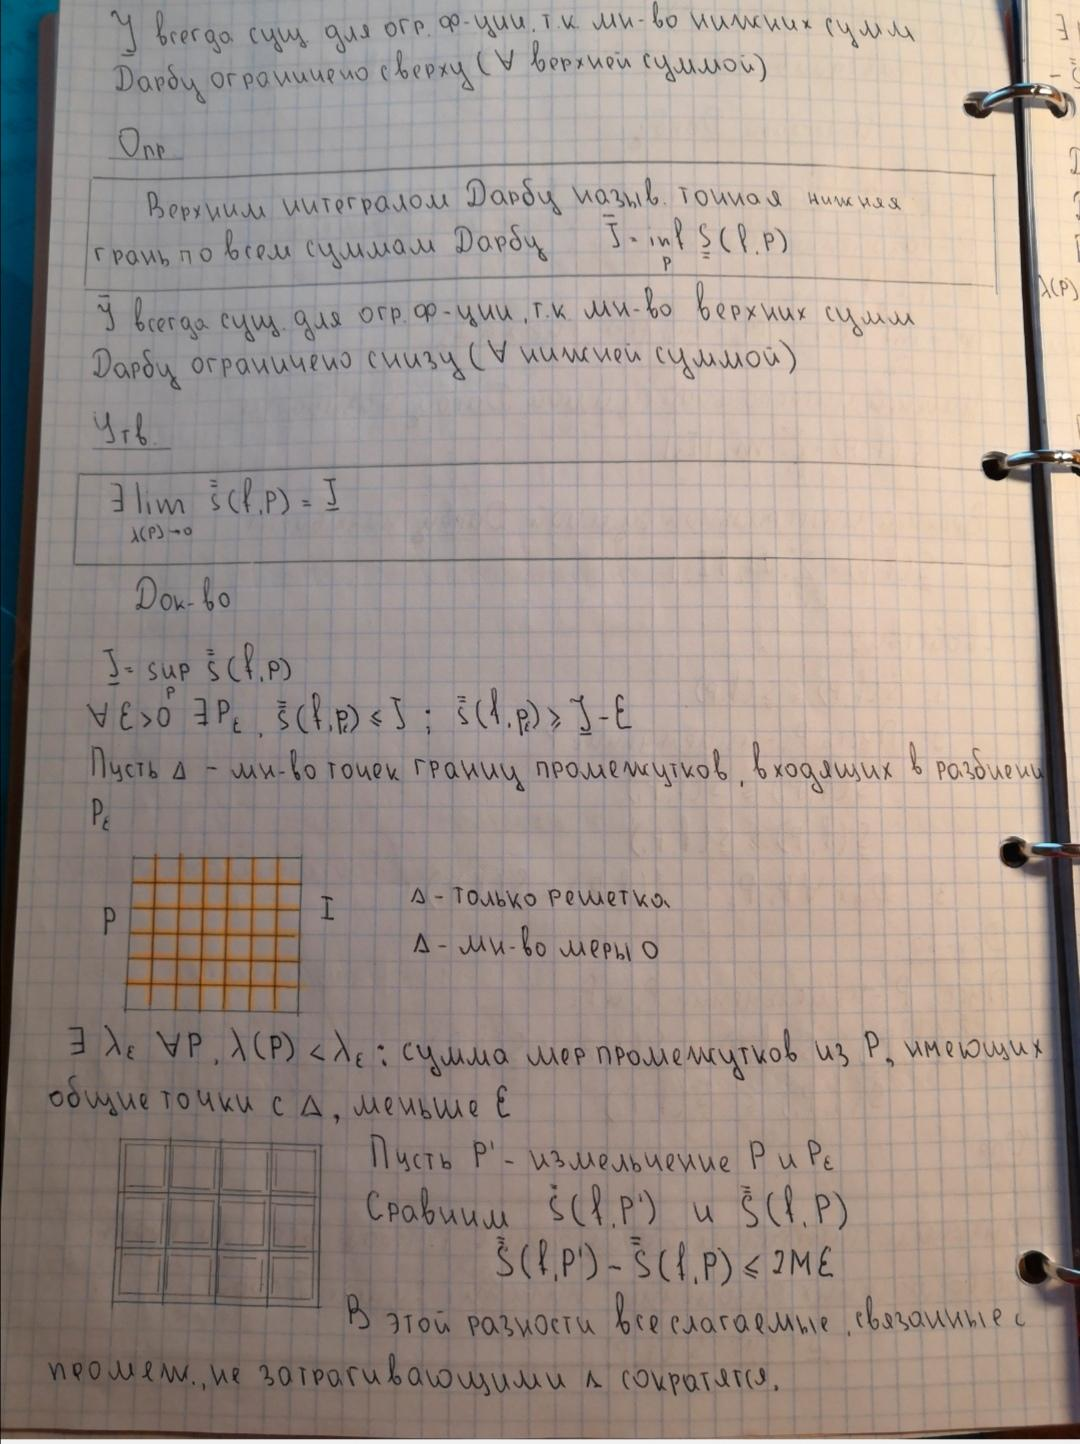 J̲ всегда сущ. для огр. ф-ции, т.к мн-во нижних сумм
Дарбу ограничено сверху (∀ верхней суммой)
Опр
Верхним интегралом Дарбу назыв. точная нижняя
грань по всем суммам Дарбу J̄ = inf S(f,P)
P
J̄ всегда сущ. для огр. ф-ции, т.к мн-во верхних сумм
Дарбу ограничено снизу (∀ нижней суммой)
Утв.
∃ lim s̿(f,P) = J̲
λ(P)→0
Док-во
J̲ = sup s̿(f,P)
P
∀ ε>0 ∃ Pε, s̿(f,Pε) ≤ J̲; s̿(f,Pε) ⩾ J̲-ε
Пусть Δ - мн-во точек границ промежутков, входящих в разбиени
Pε
P I Δ - только решетка
Δ - мн-во меры 0
∃ λε ∀P, λ(P) < λε: сумма мер промежутков из P, имеющих
общие точки с Δ, меньше ε
Пусть P' - измельчение P и Pε
Сравним s̿(f,P') и s̿(f,P)
s̿(f,P') - s̿(f,P) ≤ 2Mε
В этой разности все слагаемые, связанные с
промеж., не затрагивающими Δ сократятся.